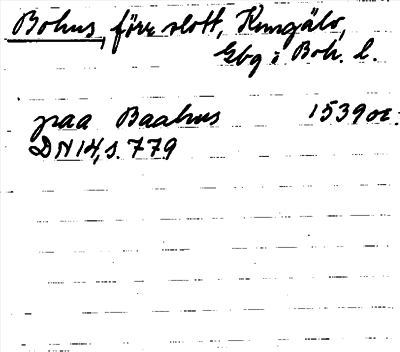 Bohus, förr slott, Kungälv,
Gbg o Boh. l.
paa Baahus 1539 or.
DN 14, s. 779